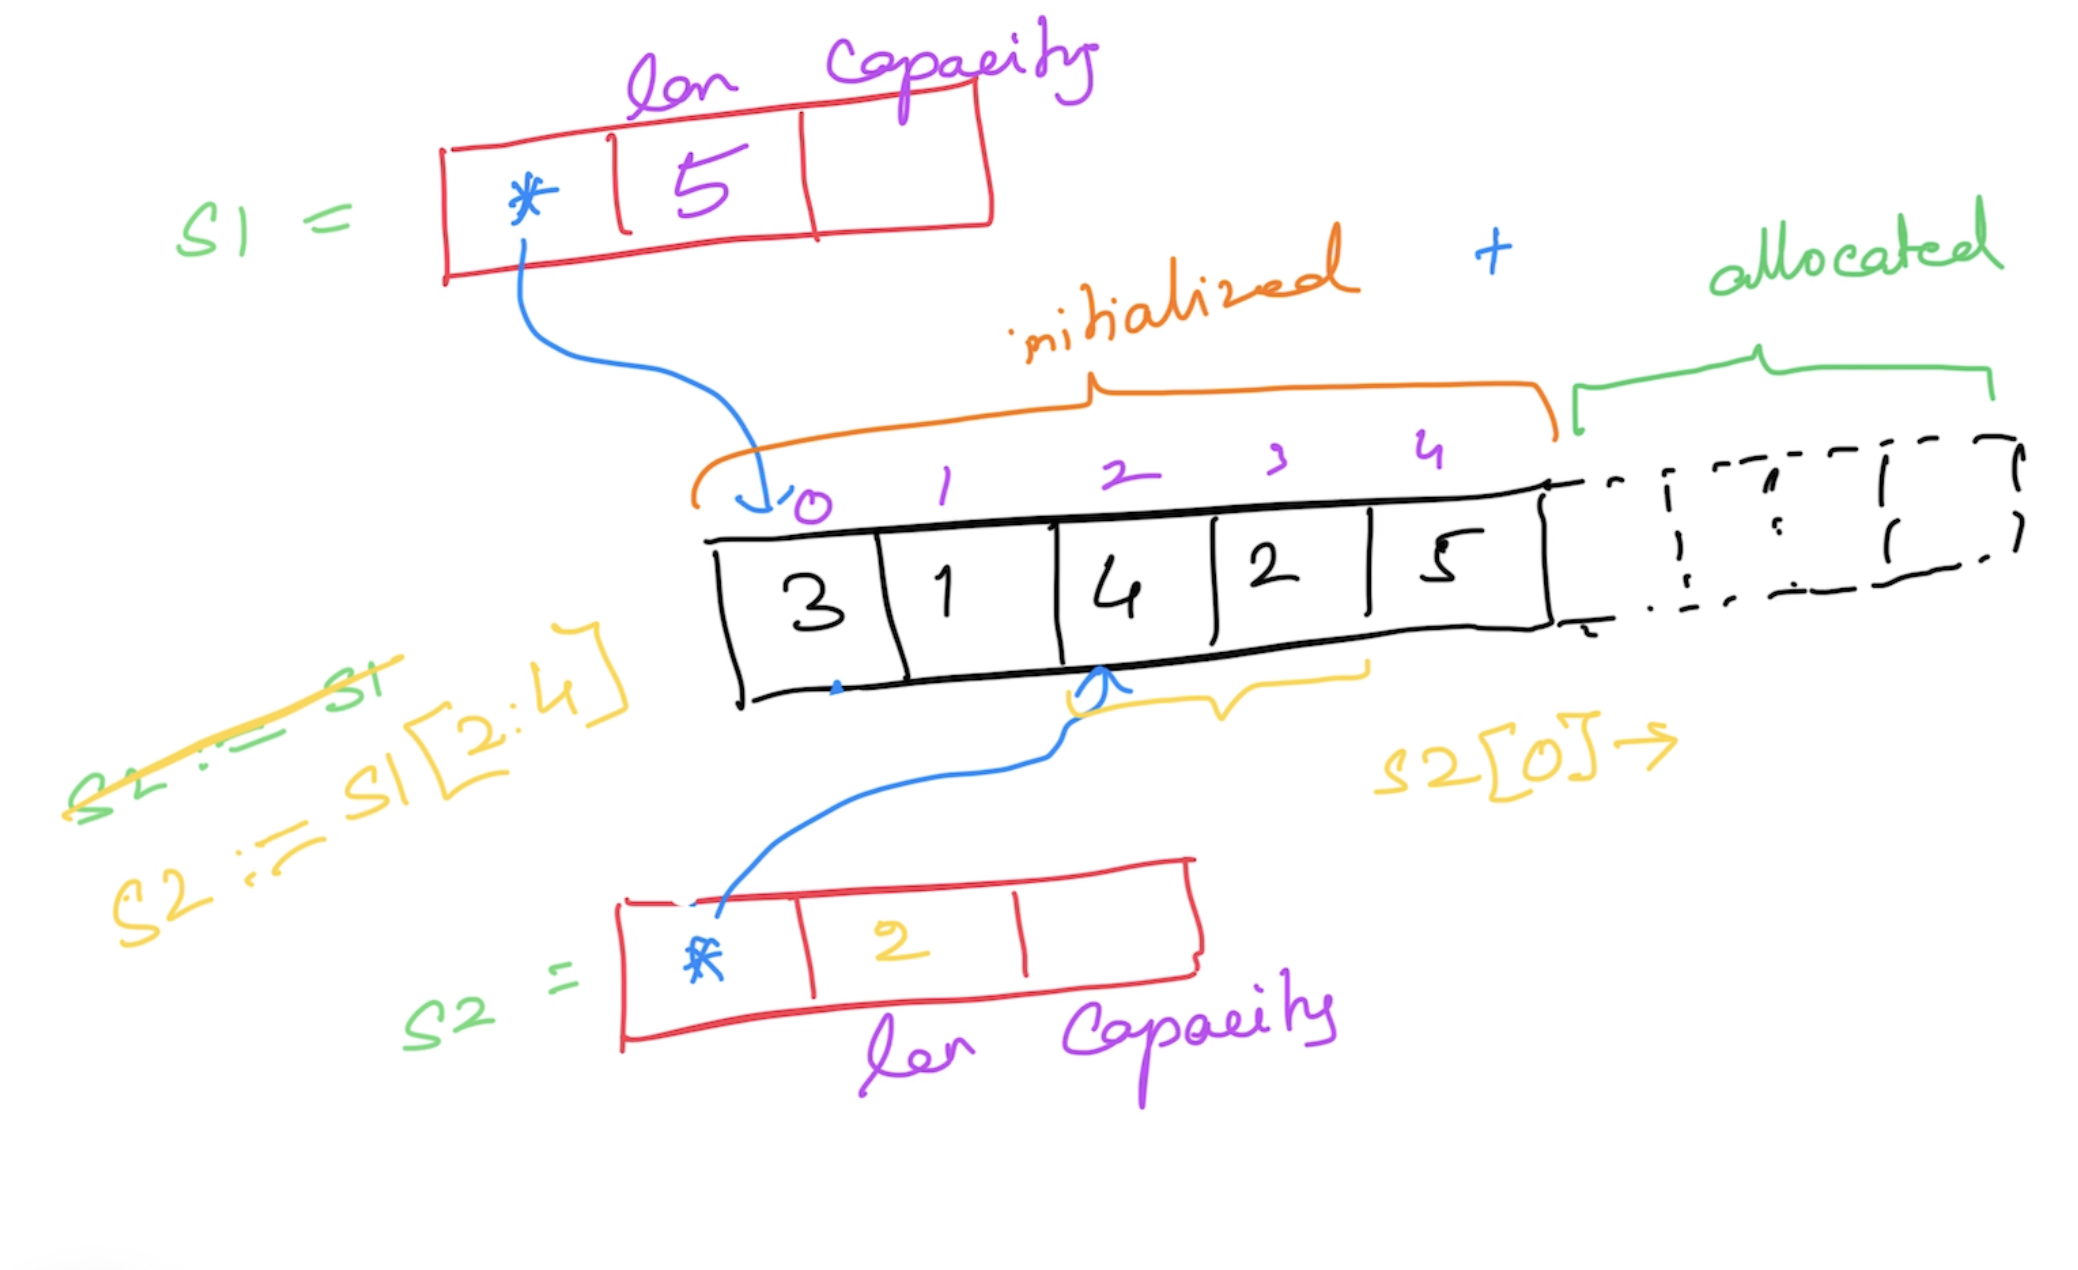 len capacity
S1 = * 5
initialized + allocated
0 1 2 3 4
3 1 4 2 5
S2 := S1
S2 := S1[2:4]
S2[0] →
S2 = * 2
len capacity